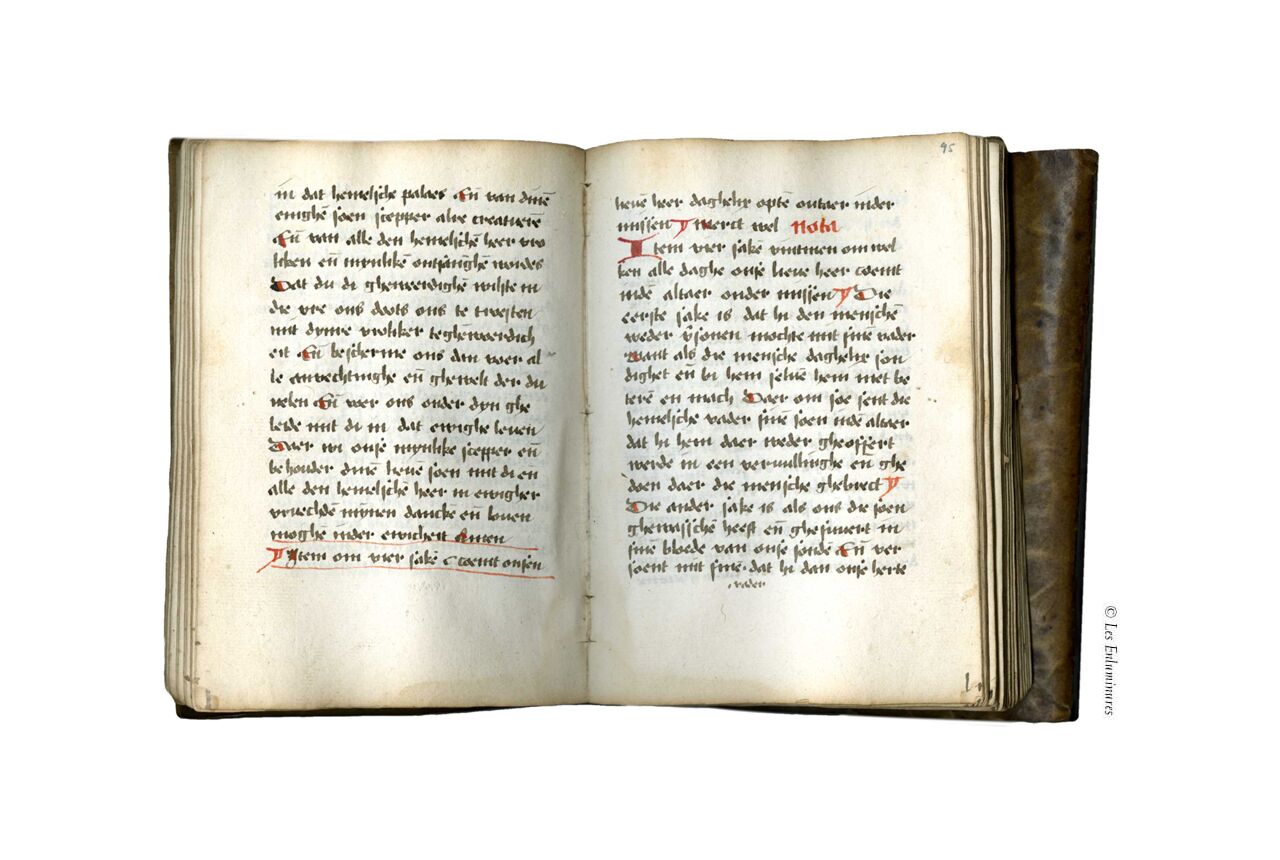 in dat hemelsche palaes Eñ van dinē
enighē soen scepper alre creaturē
Eñ van alle den hemelschē heer vro
likē eñ mynlikē ontfanghē wordes
Dat du di ghewerdighē wilste in
die vre ons doots ons te troesten
mit dynre vroliker teghēwoerdich
eit Eñ bescherme ons dan voer al
le anvechtinghe eñ ghewelt der du
velen Eñ voer ons onder dyn ghe
leide mit di in dat ewighe leuen
Daer wi onse mynlike scepper eñ
behouder dinē lieuē soen mit di eñ
alle den hemelschē heer in ewigher
vruechdē moten danckē eñ louen
moghē inder ewicheit Amen
Item om vier sakē coemt onsen
95
lieuē heer daghelix optē outaer inder
missen merct wel Nota
Item vier sakē vintmen om wel
ken alle daghe onse lieue heer coemt
indē altaer onder missen Die
eerste sake is dat hi den menschē
weder v̄sonen mochte mit sinē vader
want als die mensche daghelix son
dighet eñ bi hem seluē hem niet be
terē en mach Daer om soe sent die
hemelsche vader sinē soen indē altaer
dat hi hem daer weder gheoffert
werde in een veruullinghe eñ ghe
doen daer die mensche ghebrect
Die ander sake is als ons die soen
ghewasschē heeft eñ ghesuuert in
sinē bloede van onse sondē Eñ ver
soent mit sinē dat hi dan onse herte
vader
© Les Enluminures